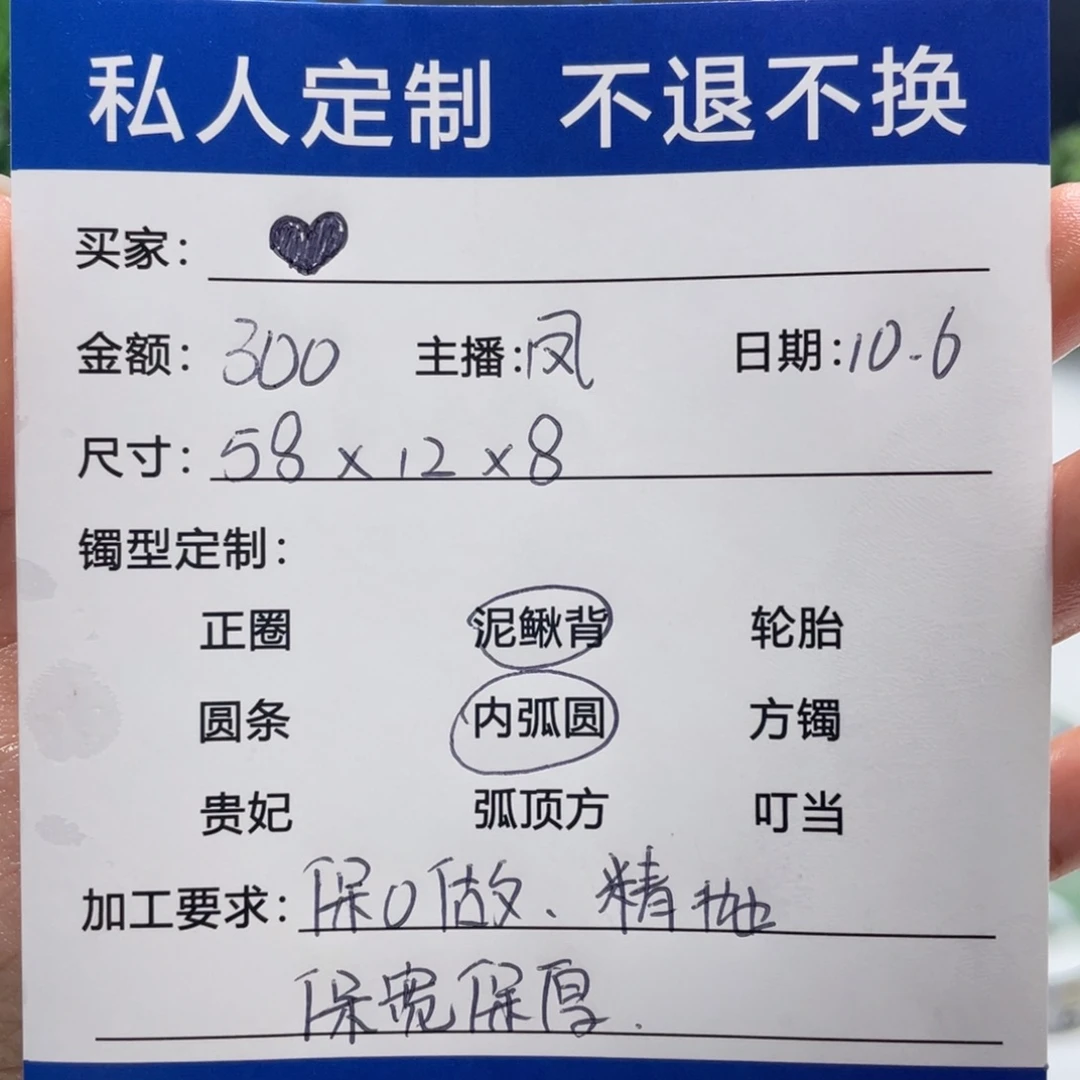 私人定制 不退不换
买家：
金额：300 主播：凤 日期：10.6
尺寸：58×12×8
镯型定制：
正圈 泥鳅背 轮胎
圆条 内弧圆 方镯
贵妃 弧顶方 叮当
加工要求：保口做、精抛
保宽保厚.